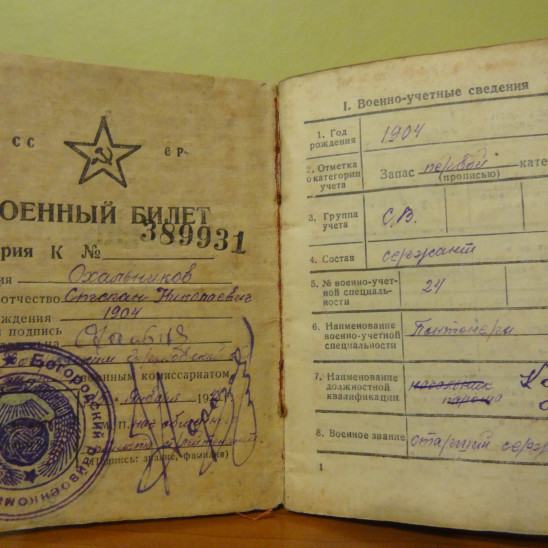 СС ЕР
ОЕННЫЙ БИЛЕТ
рия К № 389931
ия Охальников
отчество Степан Николаевич
ждения 1904
я подпись
на
енным комиссариатом
января
(Подпись: звание, фамилия)
Богородский
I. Военно-учетные сведения
1. Год рождения 1904
2. Отметка о категории учета Запас первой кате
(прописью)
3. Группа учета С.В.
4. Состав сержант
5. № военно-учетной специальности 24
6. Наименование военно-учетной специальности Понтонеры
7. Наименование должностной квалификации начальник парома
8. Военное звание старший серж
1